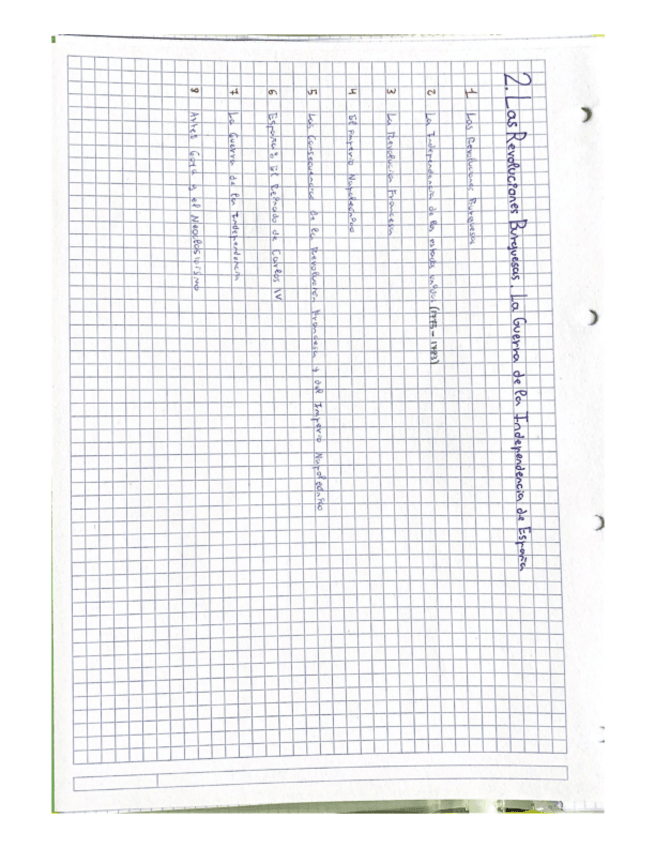 2. Las Revoluciones Burguesas. La Guerra de la Independencia de España
1 Las Revoluciones Burguesas
2 La Independencia de los estados unidos (1775-1783)
3 La Revolución Francesa
4 El Imperio Napoleónico
5 Las Consecuencias de la Revolución Francesa y del Imperio Napoleónico
6 España: El Reinado de Carlos IV
7 La Guerra de la Independencia
8 Arte: Goya y el Neoclasicismo